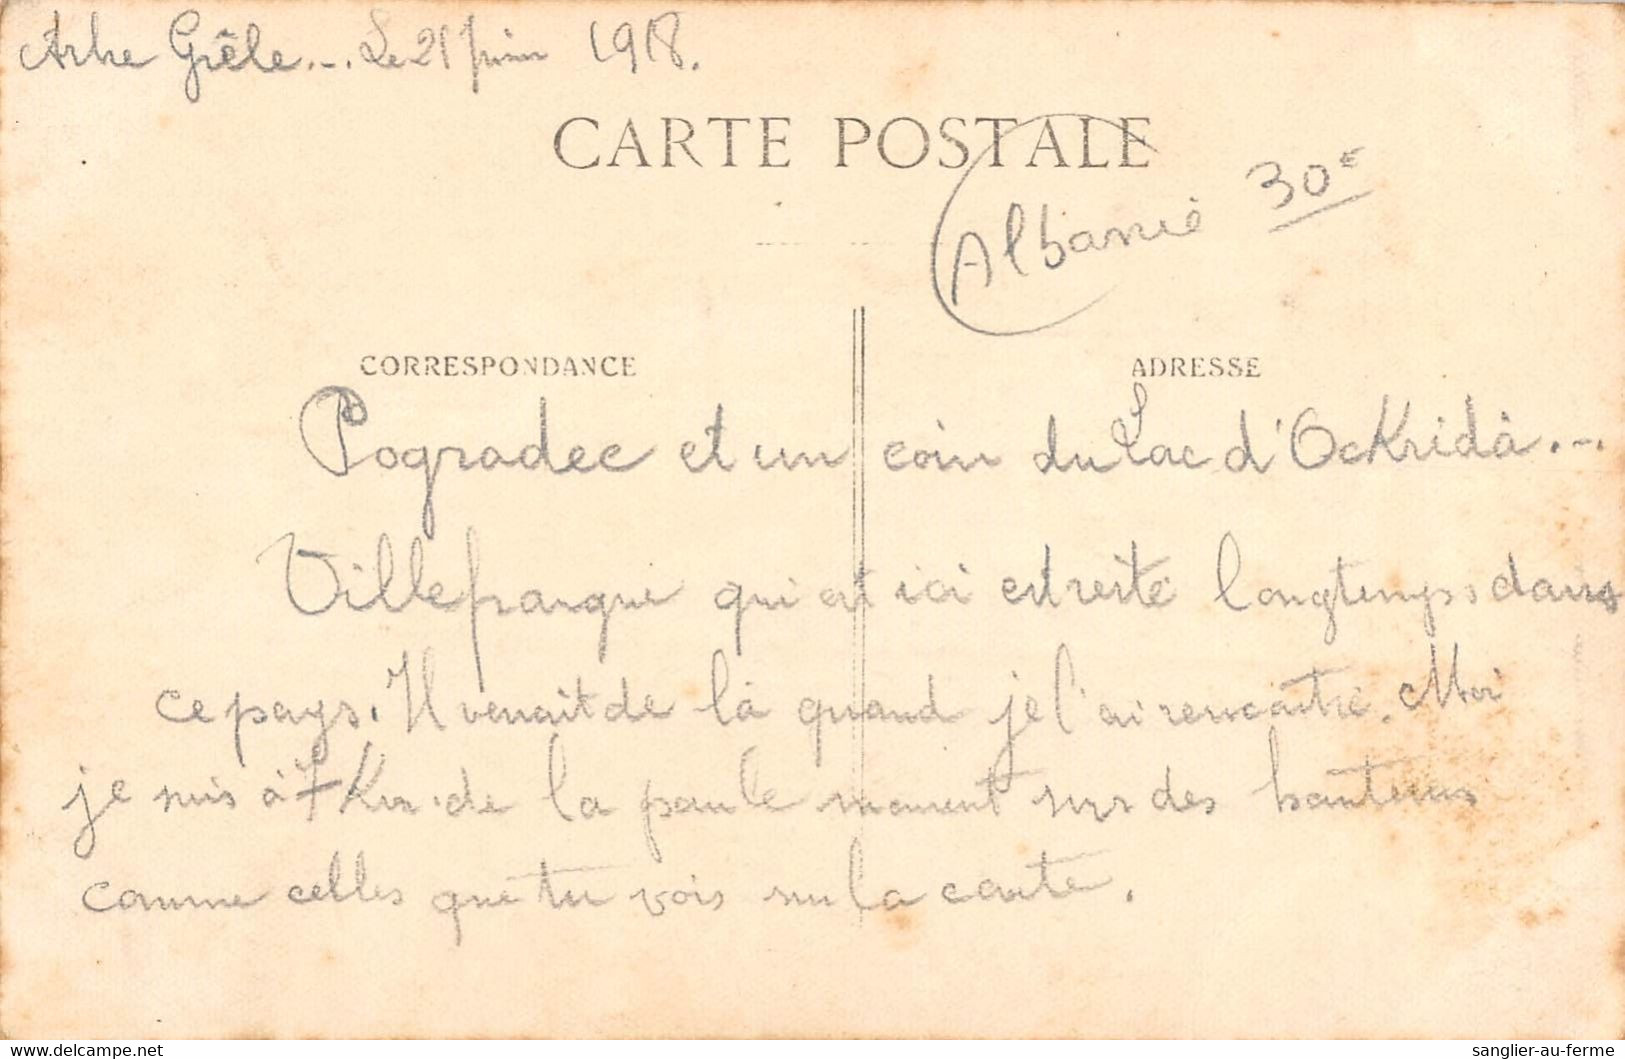 Arbre Grêle... Le 21 Juin 1918.
CARTE POSTALE
Albanie 30€
CORRESPONDANCE
ADRESSE
Pogradec et un coin du Lac d'OcKridà...
Villefranque qui est ici est resté longtemps dans
ce pays. Il venait de là quand je l'ai rencontré. Moi
je suis à 7 Km. de la pour le moment sur des hauteurs
comme celles que tu vois sur la carte.
sanglier-au-ferme